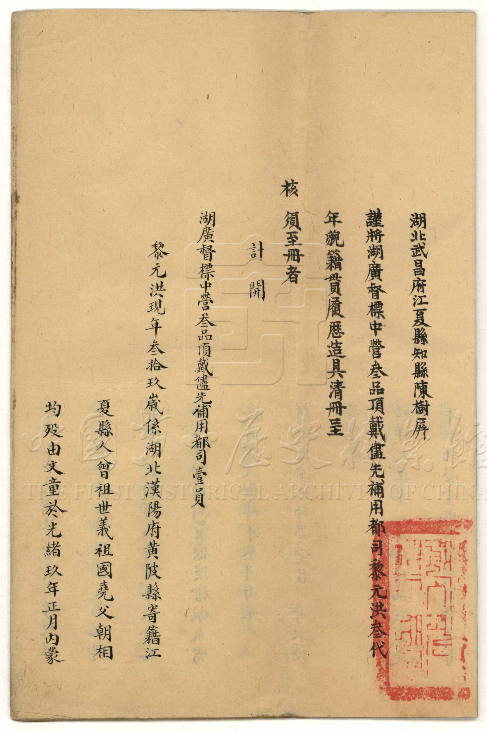 湖北武昌府江夏縣知縣陳樹屏
謹將湖廣督標中營叁品頂戴儘先補用都司黎元洪叁代
年貌籍貫履歷造具清冊呈
核須至冊者
計開
湖廣督標中營叁品頂戴儘先補用都司壹員
黎元洪現年叁拾玖歲係湖北漢陽府黃陂縣寄籍江
夏縣人曾祖世義祖國堯父朝相
均歿由文童於光緒玖年正月內蒙
中國第一歷史檔案館
THE FIRST HISTORICAL ARCHIVES OF CHINA